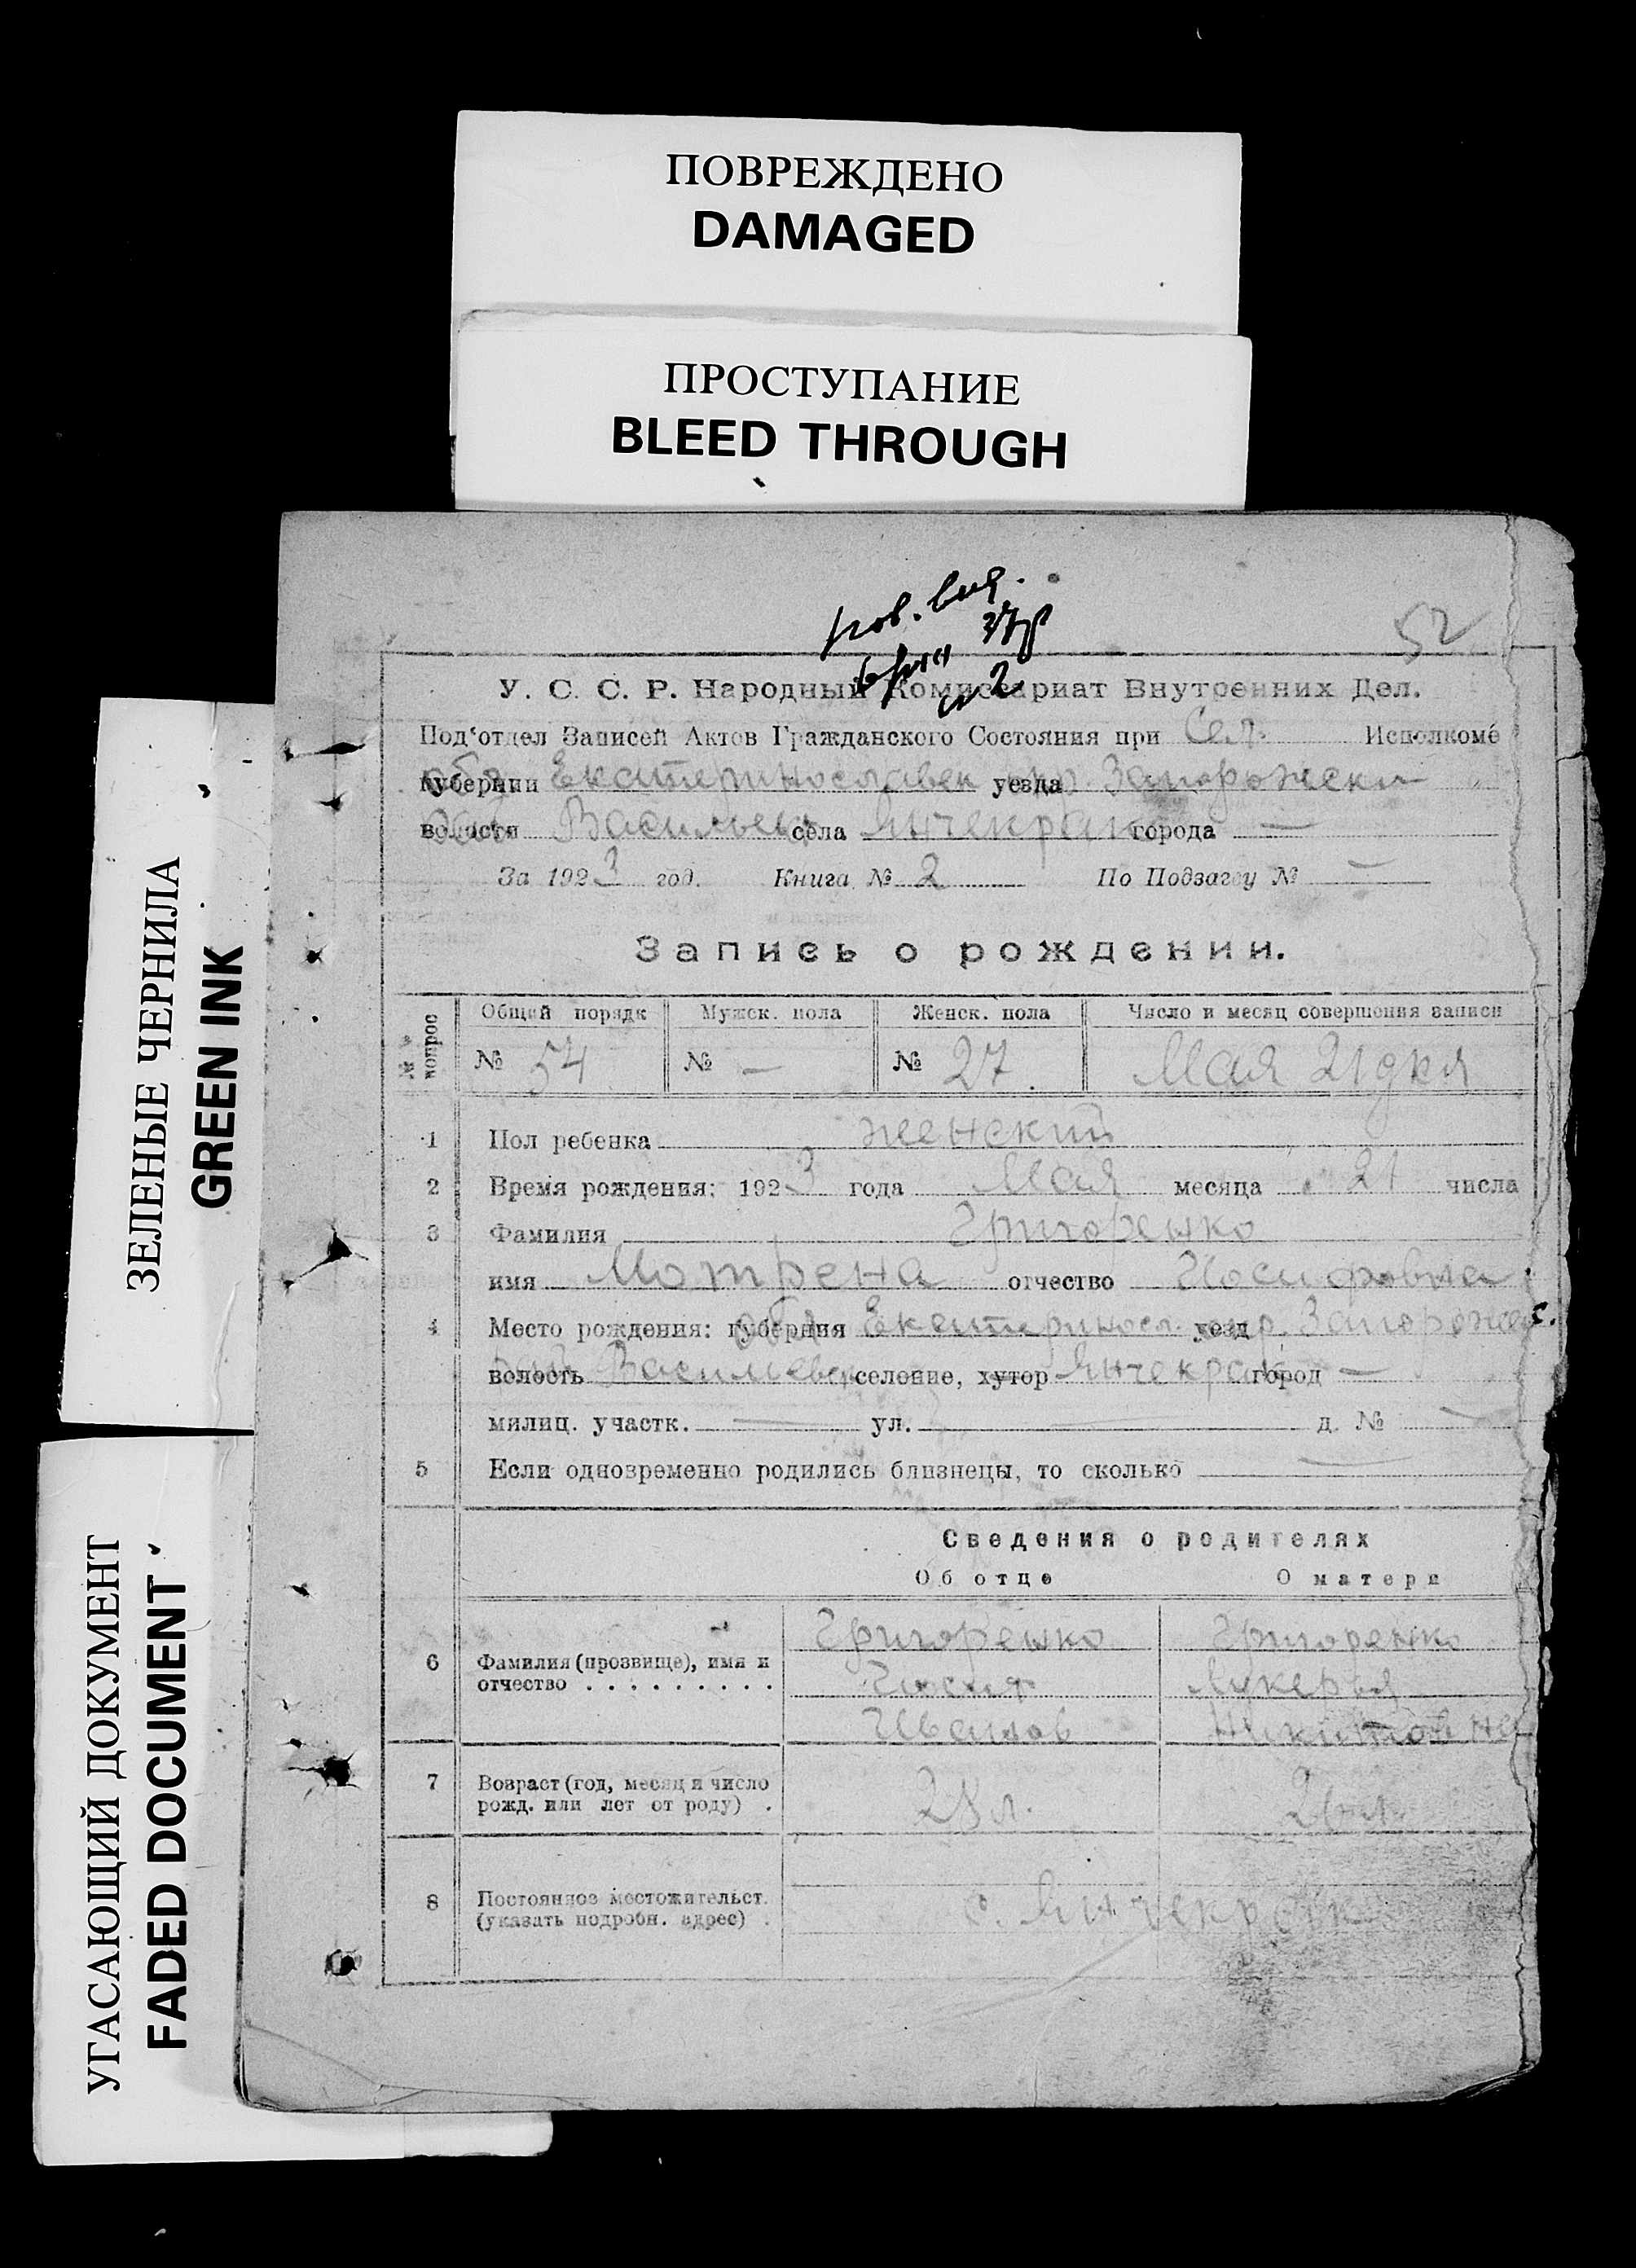 ПОВРЕЖДЕНО
DAMAGED
ПРОСТУПАНИЕ
BLEED THROUGH
ЗЕЛЕНЫЕ ЧЕРНИЛА
GREEN INK
УГАСАЮЩИЙ ДОКУМЕНТ
FADED DOCUMENT
52
У. С. С. Р. Народный Комиссариат Внутренних Дел.
Под'отдел Записей Актов Гражданского Состояния при Сел. Исполкоме
губернии Екатеринославск уезда окр. Запорожски
волости Васильевс села Янчекрак города —
За 1923 год. Книга № 2 По Подзагсу № —
Запись о рождении.
№№ вопрос
Общий порядк Мужск. пола Женск. пола Число и месяц совершения записи
№ 54 № — № 27. Мая 21 дня
1 Пол ребенка женский
2 Время рождения: 1923 года Мая месяца 21 числа
3 Фамилия Григоренко
имя Мотрена отчество Иосифовна
4 Место рождения: губерния Екатериносл. уезд окр. Запорожс.
волость Васильевск селение, хутор Янчекрак город —
милиц. участк. — ул. — д. № —
5 Если одновременно родились близнецы, то сколько —
Сведения о родителях
Об отце О матери
6 Фамилия (прозвище), имя и отчество . . . . . . . . .
Григоренко Григоренко
Иосиф Лукерья
Иванов Никитовна
7 Возраст (год, месяц и число рожд. или лет от роду) .
28 л.
8 Постоянное местожительст. (указать подробн. адрес) .
с. Янчекрак